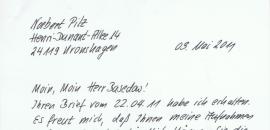 Norbert Pilz
Henri-Dunant-Allee 14
24119 Kronshagen
03 Mai 2011
Moin, Moin Herr Basedow!
Ihren Brief vom 22.04.11 habe ich erhalten.
Es freut mich, daß Ihnen meine Aufnahmen